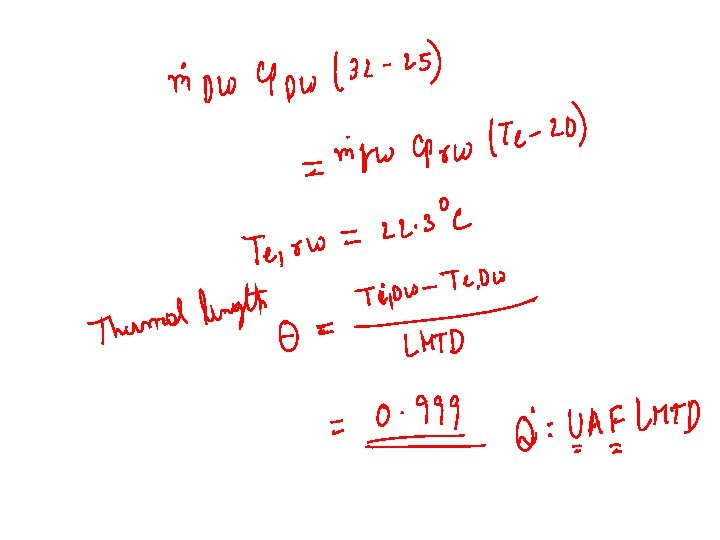 ṁ DW Cp DW (32 - 25)
= ṁ rw Cp rw (Te - 20)
Te, rw = 22.3°C
Thermal length θ = Ti,DW - Te,DW / LMTD
= 0.999 Q̇ : UAF LMTD